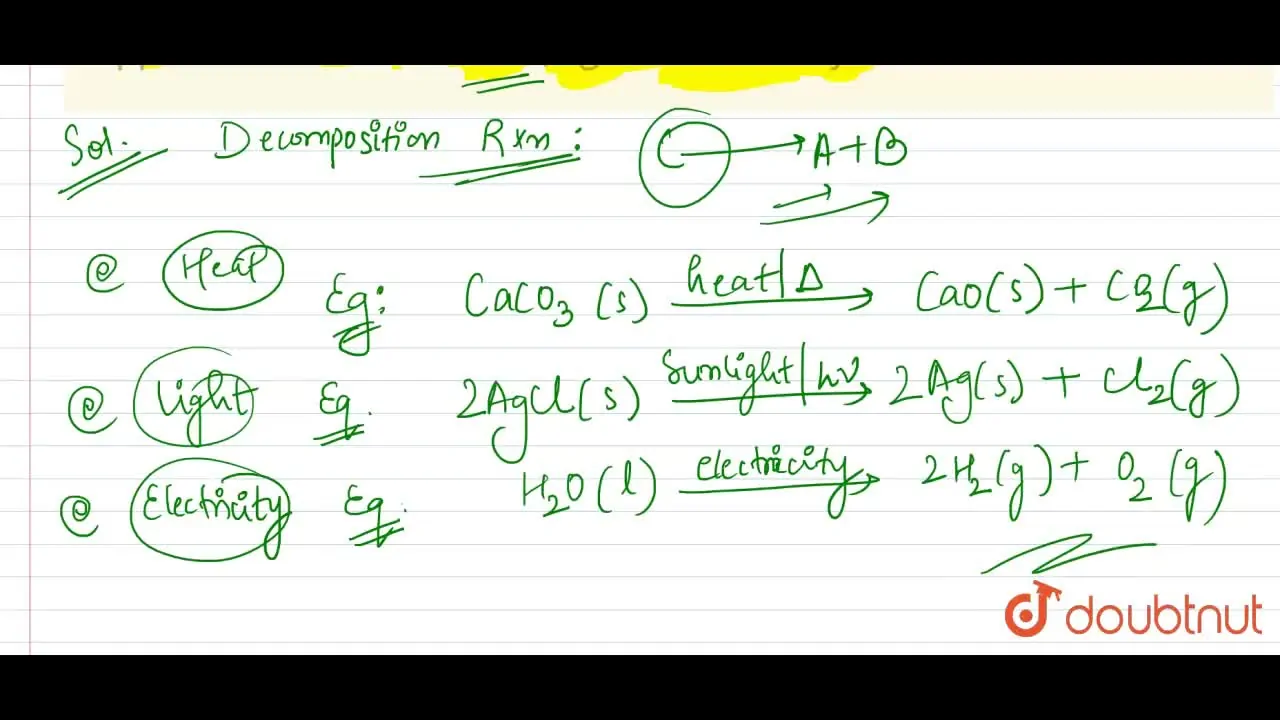 Sol. Decomposition Rxn: C → A + B
@ Heat Eg: CaCO3 (s) heat/Δ → CaO(s) + CO2(g)
@ Light Eg. 2AgCl(s) Sunlight/hν → 2Ag(s) + Cl2(g)
@ Electricity Eg. H2O(l) electricity → 2H2(g) + O2(g)
doubtnut